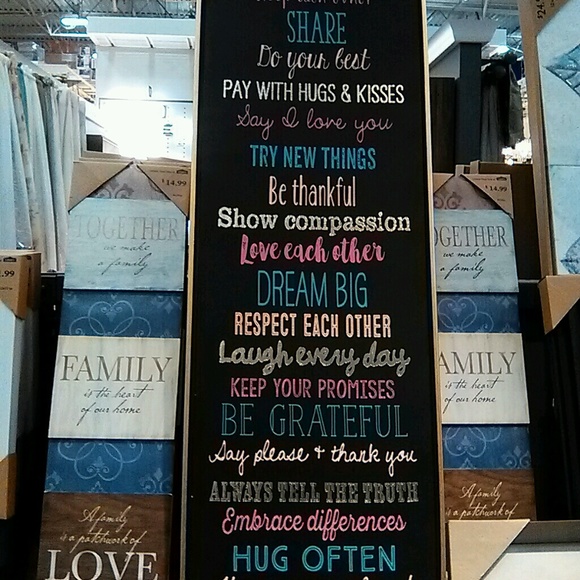 SHARE
Do your best
PAY WITH HUGS & KISSES
Say I love you
TRY NEW THINGS
Be thankful
Show compassion
Love each other
DREAM BIG
RESPECT EACH OTHER
Laugh every day
KEEP YOUR PROMISES
BE GRATEFUL
Say please + thank you
ALWAYS TELL THE TRUTH
Embrace differences
HUG OFTEN
$14.99
TOGETHER
we make
a family
FAMILY
is the heart
of our home
A family
is a patchwork of
LOVE
1.99
$14.99
OGETHER
we make
a family
AMILY
is the heart
of our home
A family
is a patchwork of
$24.